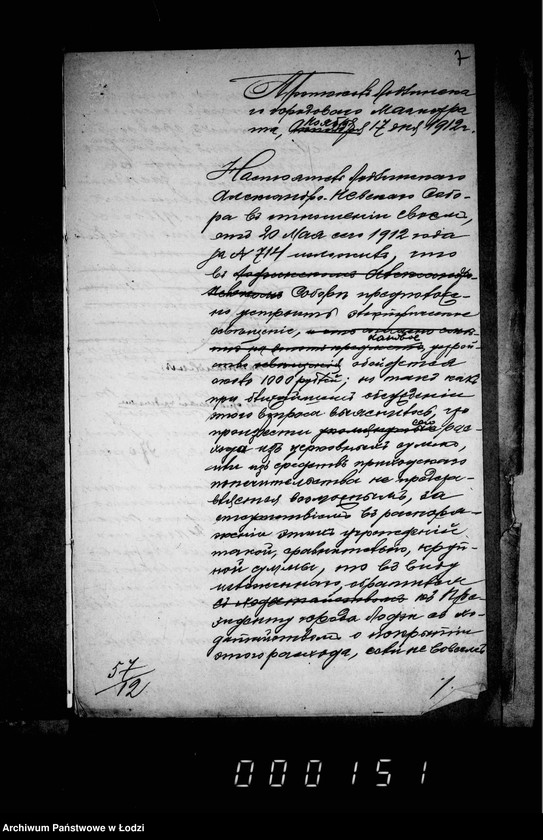 7
Протоколъ Лодзинска
го городского Магистра
та, ноября 17 дня 1912 г.
Настоятель Лодзинскаго
Александро-Невскаго Собо-
ра въ отношеніи своемъ,
отъ 20 Мая сего 1912 года
за № 714 что
въ Лодзинскомъ Александро-
Невскомъ Соборѣ предположе-
но устроить электрическое
освѣщеніе,
каковое устрой-
ство освѣщенія обойдется
около 1000 рублей; но такъ какъ
при ближайшемъ обсужденіи
этого вопроса выяснилось, что
произвести сего рас-
хода изъ церковныхъ суммъ,
или изъ средствъ приходскаго
попечительства не предста-
вляется возможнымъ, за
отсутствіемъ въ распоря-
женіи этихъ учрежденій
такой, сравнительно, круп-
ной суммы, то въ виду
изложеннаго, обратился
съ ходатайствомъ къ Пре-
зиденту города Лодзи съ хо-
датайствомъ о покрытіи
этого расхода, если не совсемъ
57/12
1.
000151
Archiwum Państwowe w Łodzi